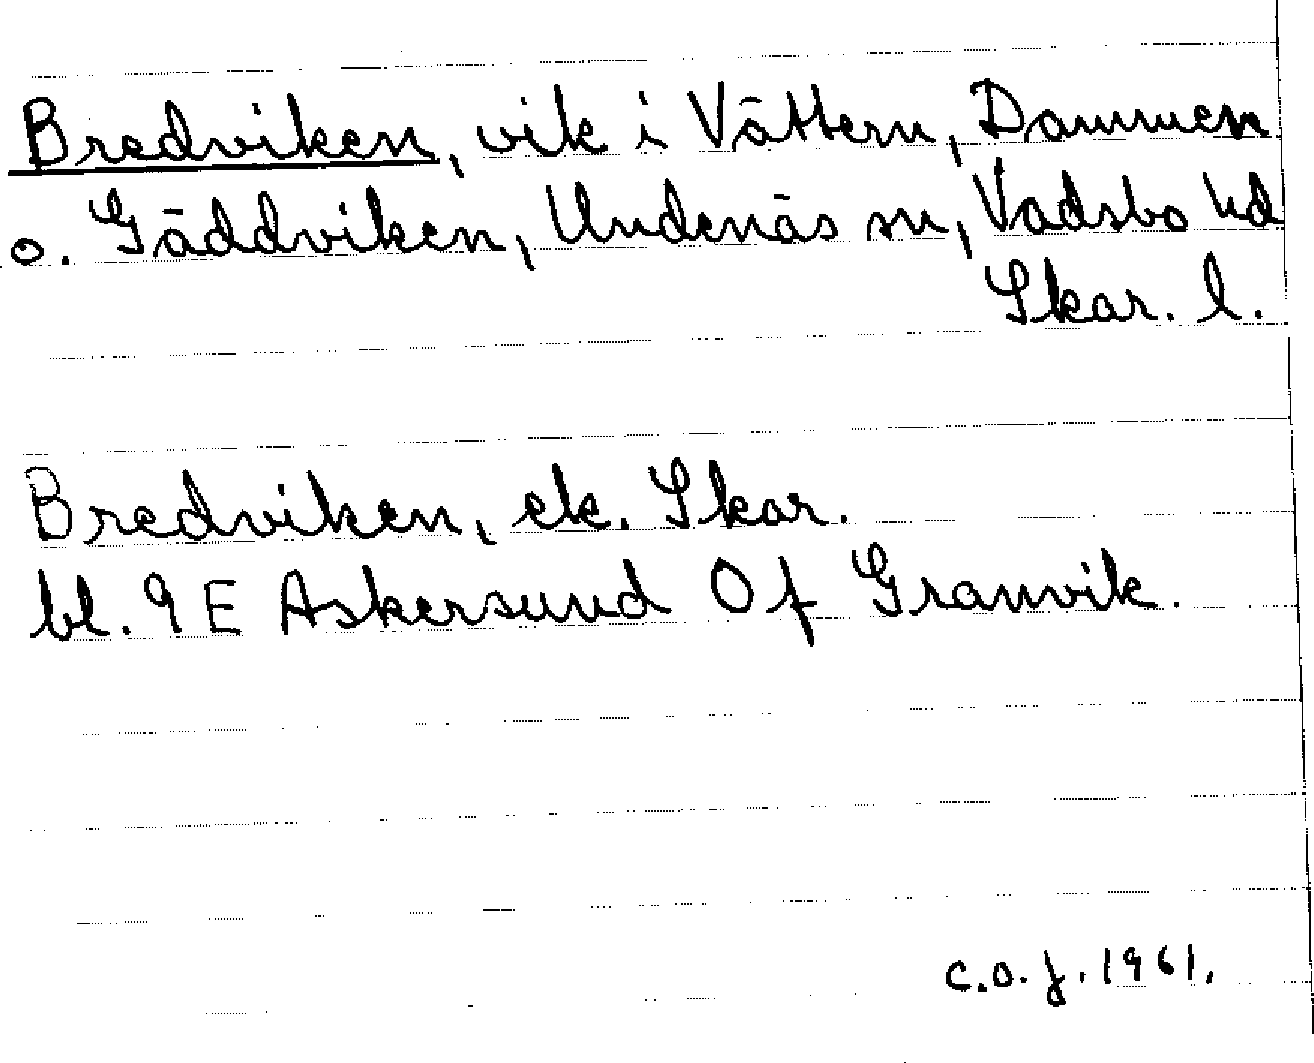 Bredviken, vik i Vättern, Dammen
o. Gäddviken, Undenäs sn, Vadsbo hd
Skar. l.
Bredviken, ek. Skar.
bl. 9 E Askersund 0 f Granvik.
C.O.J. 1961.